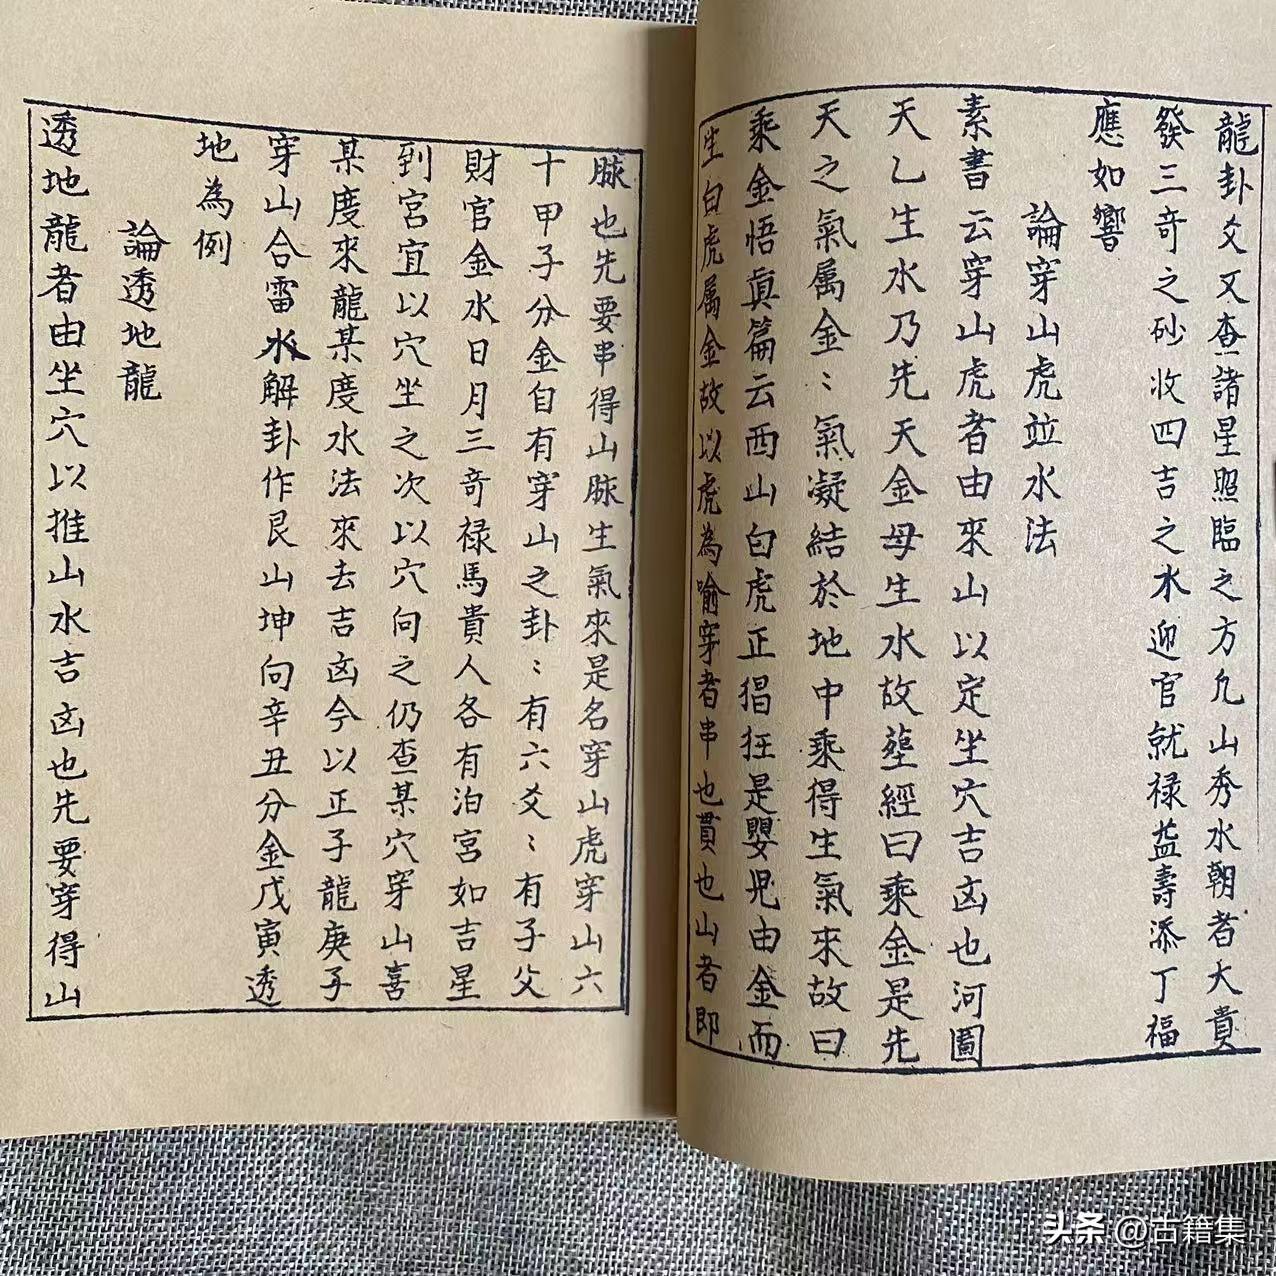 龍卦爻又查諸星照臨之方凢山秀水朝者大貴
發三奇之砂收四吉之水迎官就禄益壽添丁福
應如響
論穿山虎並水法
素書云穿山虎者由來山以定坐穴吉凶也河圖
天乙生水乃先天金母生水故塟經曰乘金是先
天之氣属金〻氣凝結於地中乘得生氣來故曰
乘金悟眞篇云西山白虎正猖狂是嬰児由金而
生白虎属金故以虎為喻穿者串也貫也山者即
脉也先要串得山脉生氣來是名穿山虎穿山六
十甲子分金自有穿山之卦〻有六爻〻有子父
財官金水日月三奇禄馬貴人各有泊宮如吉星
到宮宜以穴坐之次以穴向之仍查某穴穿山喜
某度來龍某度水法來去吉凶今以正子龍庚子
穿山合雷水解卦作艮山坤向辛丑分金戊寅透
地為例
論透地龍
透地龍者由坐穴以推山水吉凶也先要穿得山
头条 @古籍集